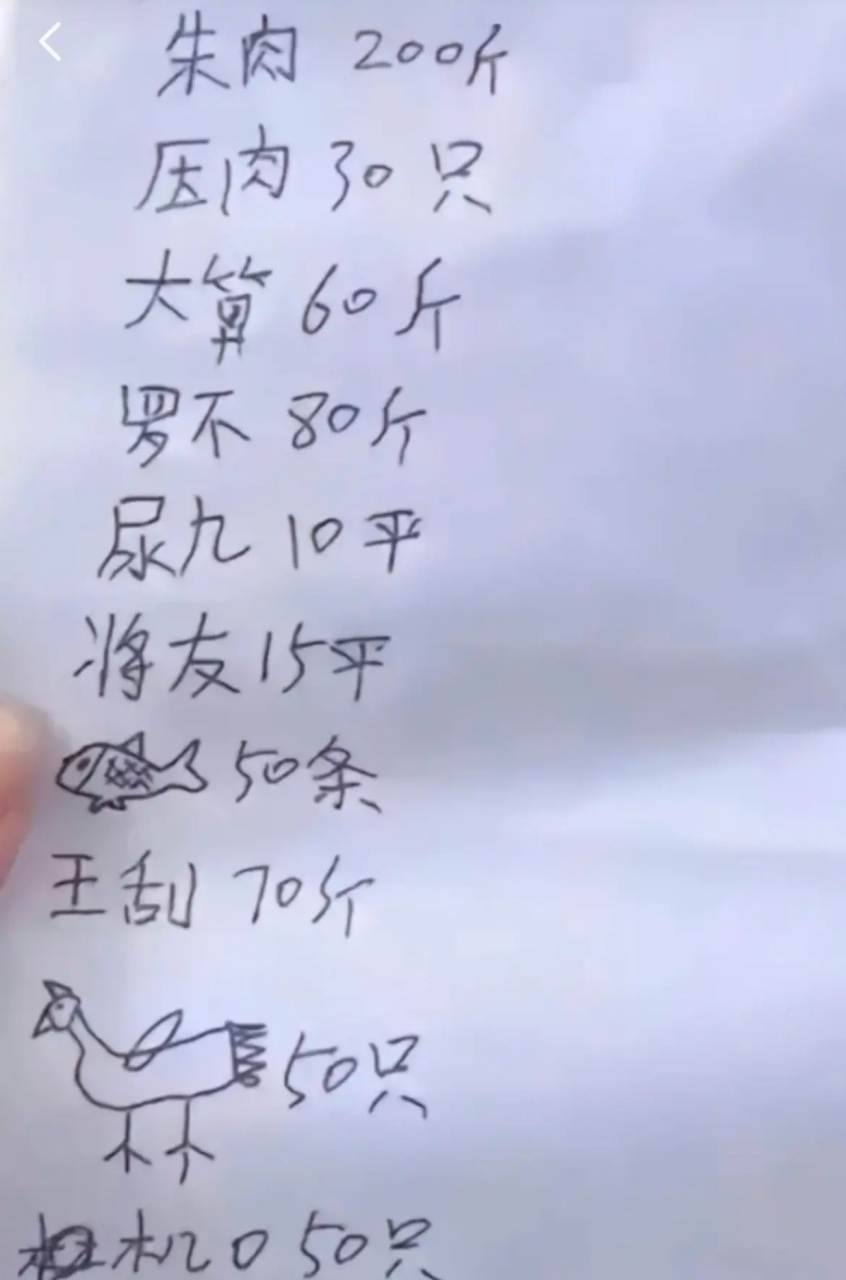 朱肉 200斤
压肉 30只
大算 60斤
罗不 80斤
尿九 10平
将友 15平
50条
王刮 70斤
50只
机 0 50只